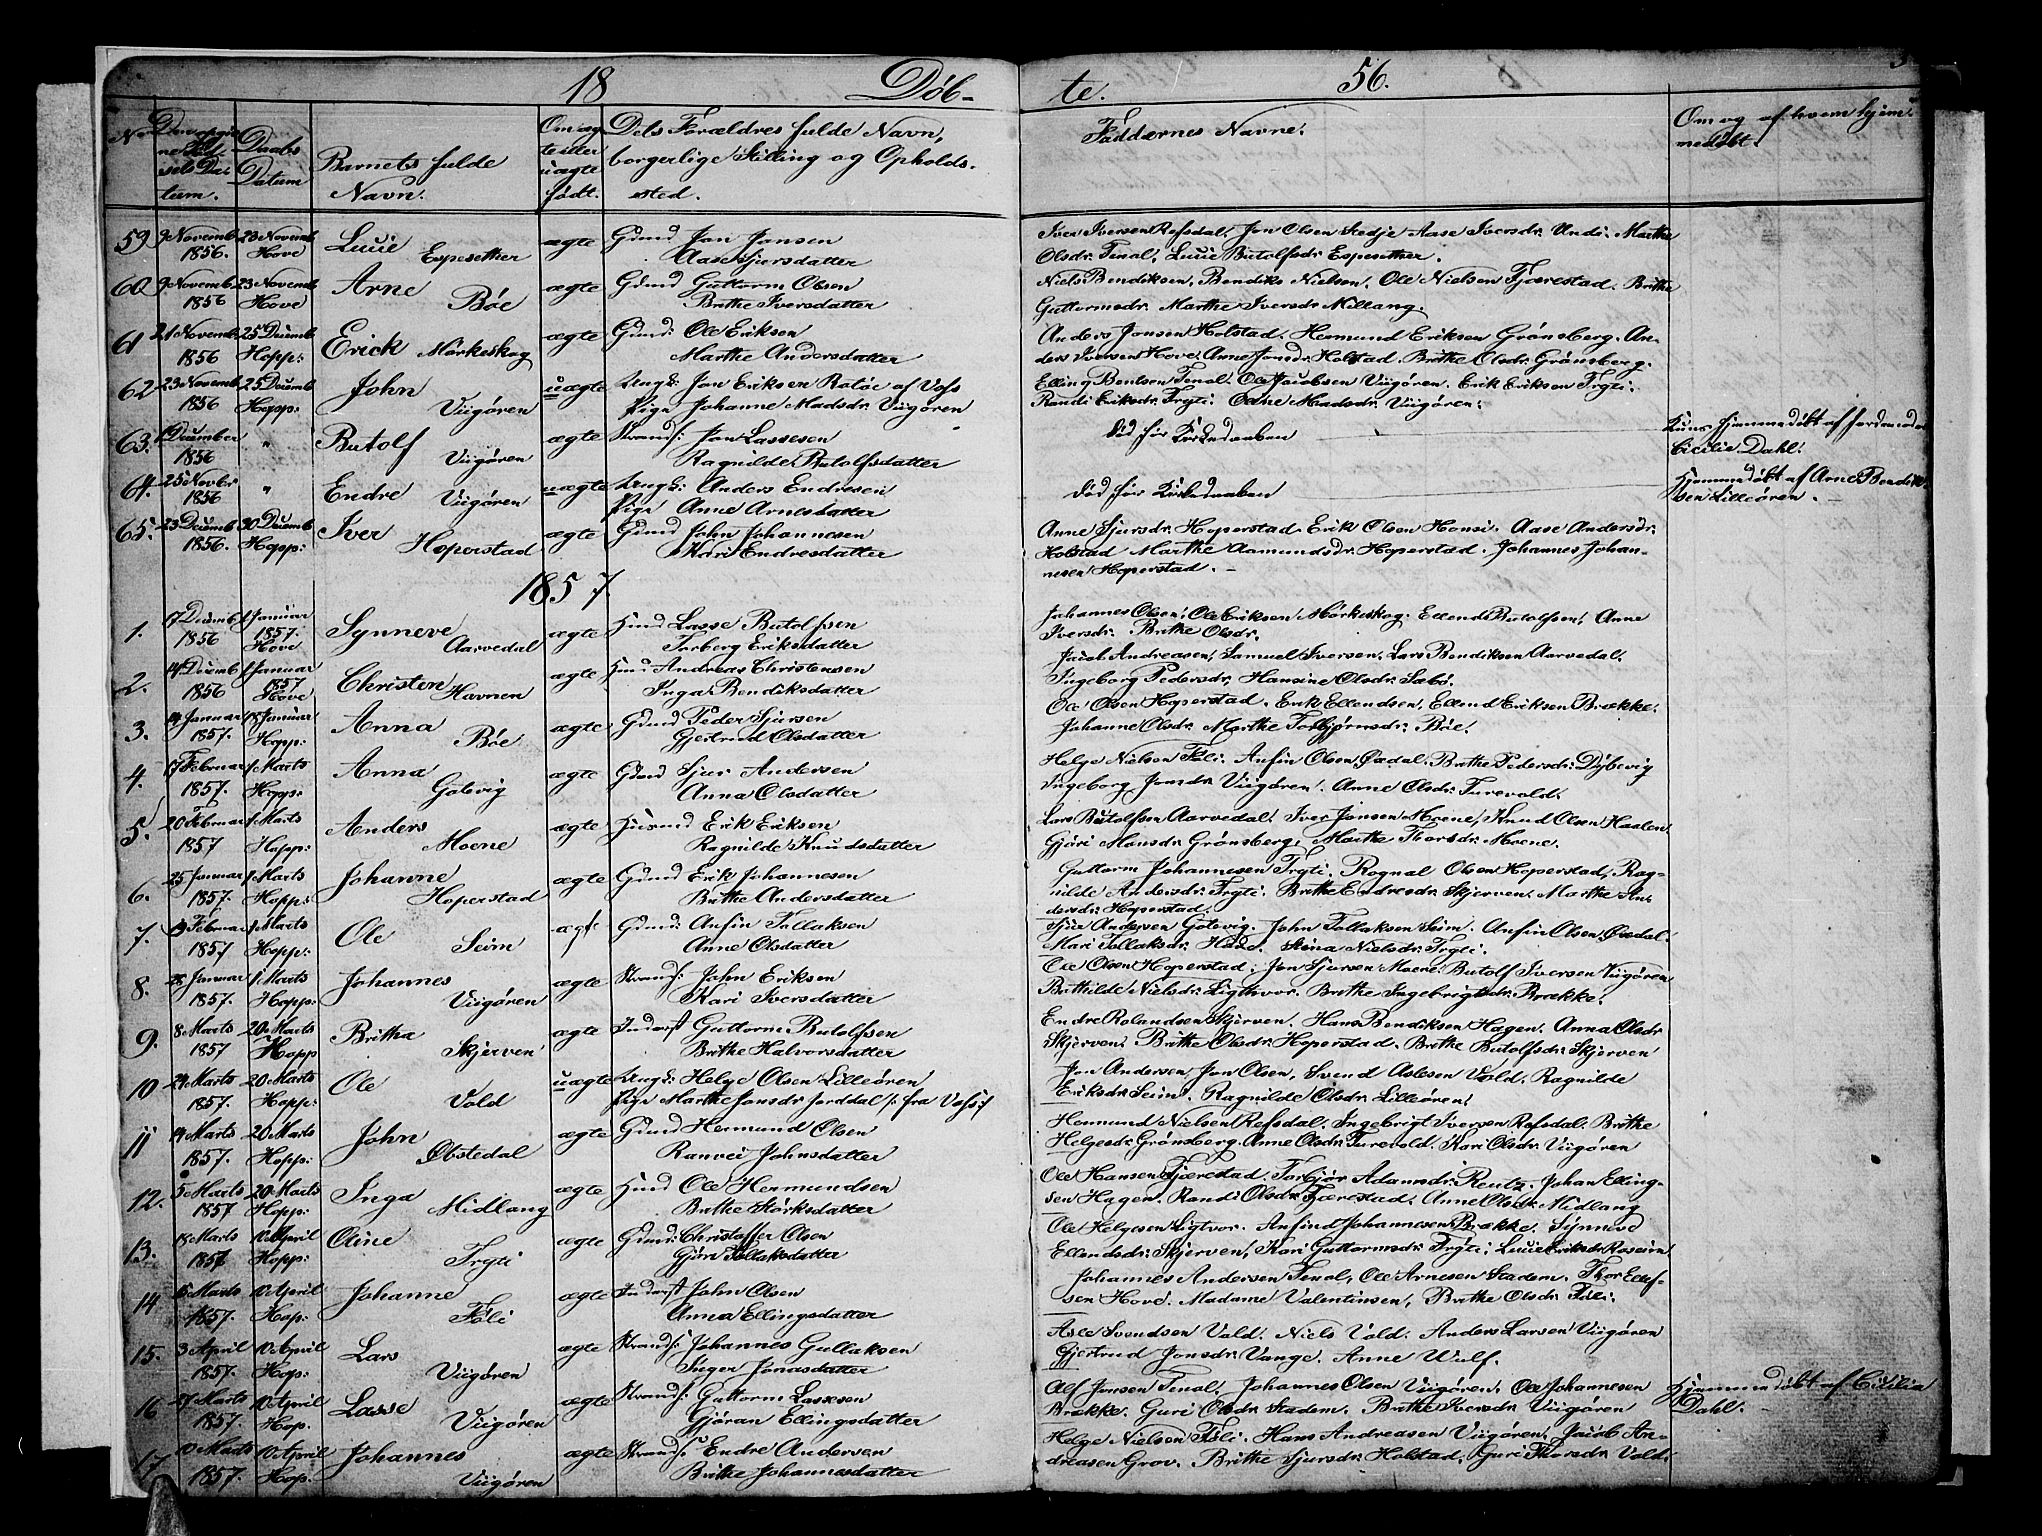 18 Döb-
te. 56.
No
Datum.
Daabs Datum
Barnets fulde Navn.
ægte eller uægte födt.
Dets Forældres fulde Navn, borgerlige Stilling og Opholds-sted.
Faddernes Navne.
Om og af hvem hjem-medöbt.
59 9 Novemb 1856. 23 Novemb Hove Lucie Espesether ægte Gmd Jon Jonsen Aase Sjursdatter
Iver Iversen Refsdal. Jon Olsen Stedje Aase Iversdr. Undi. Marthe
Olsdr. Tenal, Lucie Butolfsdr Espesether.
60 9 Novemb 1856 23 Novemb Hove Arne Böe ægte Gmd Guttorm Olsen Brithe Iversdatter
Niels Bendiksen, Bendiks Nielsen, Ole Nielsen Fjærestad. Brithe
Guttormsdr. Marthe Iversdr Millang
61 21 Novemb 1856 25 Decemb Hopp: Erick Mörkeskog ægte Gmd: Ole Eriksen Marthe Andersdatter
Anders Jonsen Holstad. Hermund Eriksen Grønsberg. An-
ders Iversen Hove. Anne Jonsdr. Holstad. Brithe Olsdr. Grønsberg.
62 23 Novemb 1856 25 Decemb Hopp: John Viigören uægte Ungk: Jon Eriksen Rotöe af Vofs Pige Johanne Madsdr. Viigören
Elling Bentsen Tenol. Ole Jacobsen Viigören. Erik Eriksen Trgti.
Randi Eriksdr. Trgti. Odne Madsdr. Viigören.
63. 1 December 1856 " Butolf Viigören ægte Strands: Jon Lassesen Ragnilde Butolfsdatter
död för Kirkedaaben
Kuns hjemmedöbt af Jordemoder
Cicilie Dahl.
64. 25 Novbr 1856 " Endre Viigören uægte Ungk: Anders Endresen Pige Anne Arnesdatter
död för Kirkedaaben
Hjemmedöbt af Arne Bendik-
sen Lilleören.
65. 23 Decemb 1856. 30 Decemb Hopp: Iver Hoperstad ægte Gmd John Johannesen Kari Endresdatter
Anne Sjursdr. Hoperstad. Erik Olsen Honsi. Aase Andersdr.
Holstad Marthe Aamundsdr. Hoperstad. Johannes Johan-
nesen Hoperstad.
1857
1. 17 Decemb 1856 1 Januar 1857. Hove Synneve Aarvedal ægte Hmd Lasse Butolfsen Torberg Eriksdatter
Johannes Olsen, Ole Eriksen Mörkeskog. Ellend Butolfsen, Anne
Iversdr. Brithe Olsdr.
2. 14 Decemb 1856 1 Januar 1857 Hove Christen Havnen ægte Hmd Andreas Christensen Inga Bendiksdatter
Jacob Andreasen, Samuel Iversen. Lars Bendiksen Aarvedal.
Ingeborg Pedersdr, Hansine Olsdr. Sabö.
3. 14 Januar 1857. 18 Januar Hopp: Anna Böe ægte Gmd Peder Sjursen Gjertrud Olsdatter
Ole Olsen Hoperstad. Erik Ellendsen, Ellend Eriksen Brække.
Johanne Olsdr. Marthe Torbjörnsdr. Böe.
4. 17 Februar 1857. 1 Marts Hopp: Anna Golevig ægte Gmd Sjur Andersen Anna Olsdatter
Helge Nielsen Föli. Anfin Olsen Øvedal. Brithe Pedersdr: Dybevig
Ingeborg Jonsdr. Viigören. Anne Olsdr. Turevold.
5. 20 Februar 1857 1 Marts Hopp: Anders Moene ægte Erik Eriksen Ragnilde Knudsdatter
Lars Butolfsen Aarvedal. Iver Jonsen Moene, Knud Olsen Haalen.
Gjöri Monsdr. Grønsberg, Marthe Thorsdr. Moene.
6. 25 Januar 1857. 1 Marts Hopp: Johanne Hoperstad ægte Gmd Erik Johannesen Brithe Andersdatter
Guttorm Johannesen Trgti. Rognal Olsen Hoperstad, Rag-
nilde Andersdr. Trgti. Brithe Endresdr. Skjerven. Marthe An-
dersdr. Hoperstad.
7. Februar 1857 1 Marts Hopp: Ole Seim ægt Gmd: Anfin Tollaksen Anne Olsdatter
Sjur Andersen Golevig. John Tollaksen Seim. Anfin Olsen Øvedal.
Mari Tollaksdr. Stina Nielsdr. Trgti.
8. 28 Januar 1857. 1 Marts Hopp: Johannes Viigören ægte Strands: John Eriksen Kari Iversdatter
Ole Olsen Hoperstad. Jon Sjursen Moene. Butolf Iversen Viigören
Bathilde Nielsdr. Ligthvor. Brithe Ingebrigtsdr. Brække.
9. 8 Marts 1857 20 Marts Hopp Britha Skjerven ægte Inderst Guttorm Butolfsen Brithe Halvorsdatter
Endre Rolandsen Skjerven. Hans Bendiksen Hagen. Anna Olsdr
Skjerven. Brithe Olsdr. Hoperstad. Brithe Butolfsdr. Skjerven
10 24 Marts 1857. 20 Marts Hopp: Ole Vold uægte Ungk: Helge Olsen Lilleören Pige Marthe Jonsdr Jorddal /: fra Vofs :/
Jon Andersen Jon Olsen, Svend Aslesen Vold. Ragnilde
Eriksdr. Seim. Ragnilde Olsdr. Lilleören.
11 14 Marts 1857. 20 Marts Hopp: John Obstedal ægte Gmd Hermund Olsen Ranvei Johnsdatter
Hermund Nielsen Refsdal. Ingebrigt Iversen Refsdal. Brithe
Helgesdr. Grønsberg. Anne Olsdr. Turevold. Kari Olsdr. Viigören
12. 5 Marts 1857 20 Marts Hopp: Inga Midlang ægte Hmd Ole Hermundsen Brithe Störksdatter
Ole Hansen Fjærestad. Torbjör Adamsdr. Reutz. Johan Elling-
sen Hagen. Randi Olsdr. Fjærestad. Anne Olsdr Midlang
13. 18 Marts 1857 10 April Hopp: Oline Trgti ægte Gmd: Christoffer Olsen Gjöri Tollaksdatter
Ole Helgesen Ligtvor. Anfind Johannesen Brække. Synnove
Ellendsdr. Skjerven, Kari Guttormsdr. Trgti. Lucie Eriksdr. Roseim
14 5 Marts 1857. 10 April Hop: Johanne Föli ægte Inderst John Olsen Anna Ellingsdatter
Johannes Andersen Tenol, Ole Arnesen Stadem. Thor Ellef-
sen Hove. Madame Valentinsen, Brithe Olsdr. Föli.
15. 3 April 1857. 10 April Hop: Lars Viigören ægte Strands: Johannes Gullaksen Inger Jonasdatter
Asle Svendsen Vold. Niels Vold. Anders Larsen Viigören
Gjertrud Jonsdr. Vange. Anne Wulf.
16 27 Marts 1857. 10 April Hop. Lasse Viigören ægte Strands: Guttorm Lassesen Gjöran Ellingsdatter
Alf Jonsen Tenol, Johannes Olsen Viigören. Ole Johannesen
Brække. Guri Olsdr. Stadem. Brithe Iversdr. Viigören
Hjemmedöbt af Cicilia
Dahl.
17 10 Marts 1857. 10 April Hop. Johannes Viigören ægte Strands: Endre Andersen Brithe Johannesdatter
Helge Nielsen Föli. Hans Andreasen Viigören, Jacob An-
dreasen Grov. Brithe Sjursdr. Holstad. Guri Thorsdr. Vold.